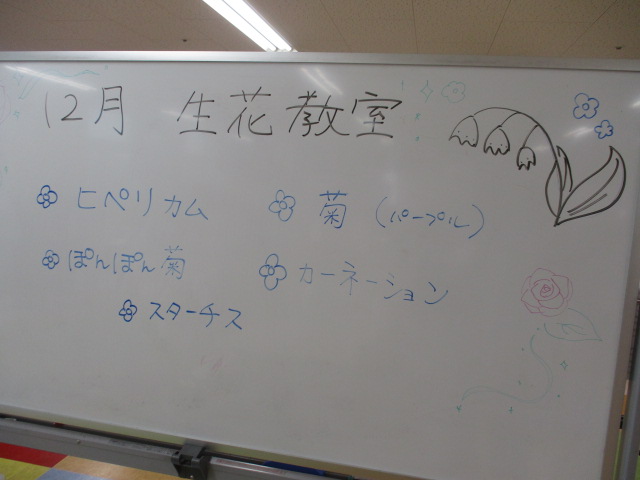 12月 生花教室
ヒペリカム 菊 (パープル)
ぽんぽん菊 カーネーション
スターチス